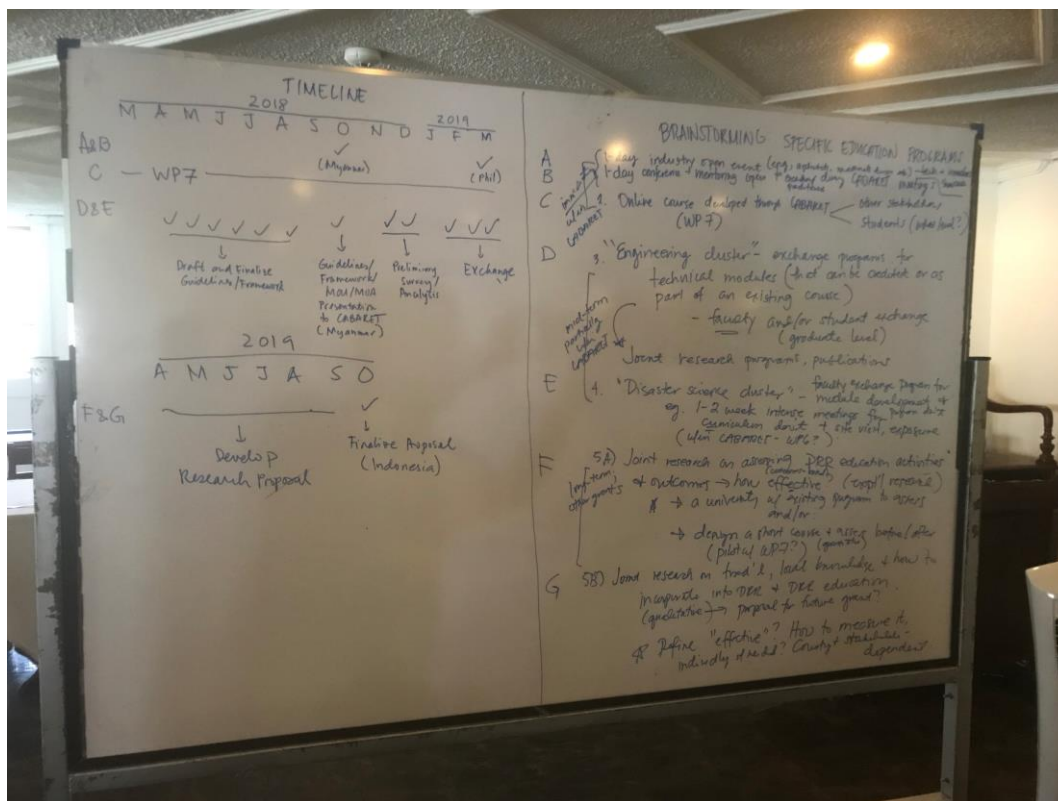 TIMELINE
2018
2019
M A M J J A S O N D J F M
A&B
✓ ✓
(Myanmar) (Phil)
C — WP7
D&E
✓ ✓ ✓ ✓ ✓ ✓ ✓ ✓ ✓ ✓ ✓
Draft and Finalise
Guidelines/Framework
Guidelines/
Framework/
MOU/MOA
Presentation
to CABARET
(Myanmar)
Preliminary
Survey/
Analysis
Exchange
2019
A M J J A S O
F&G
✓
Develop
Research Proposal
Finalise Proposal
(Indonesia)
BRAINSTORMING SPECIFIC EDUCATION PROGRAMS
A 1-day industry open event
B 1-day conference + mentoring open to during CABARET meetings
w/in
CABARET
C 2. Online course developed through CABARET
other stakeholders
students
(WP7)
D 3. "Engineering cluster" - exchange programs for
technical modules (that can be or as
part of an existing course)
- faculty and/or student exchange
(graduate level)
mid-term
partially
w/in
CABARET
Joint research programs, publications
E 4. "Disaster science cluster" - faculty exchange program for
module development +
eg. 1-2 week intense meetings for
curriculum + site visit, exposure
(w/in CABARET - WP6?)
F 5A) Joint research on assessing DRR education activities
long-term
other grants
& outcomes → how effective
→ a university w/ existing program to assess
and/or
→ design a short course + assess before/after
(pilot w/ WP7?)
G 5B) Joint research on trad'l, local knowledge & how to
incorporate into DRR & DRR education
(qualitative) → proposal for future grant?
* Define "effective"? How to measure it,
indirectly Country & stakeholder-
dependent?